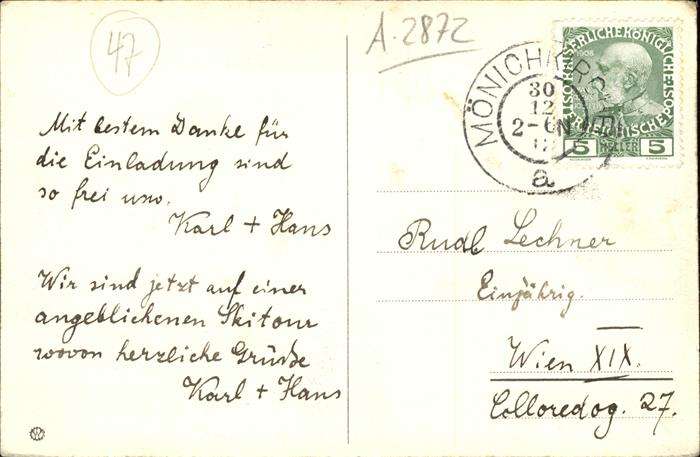 47
A. 2872
Mit bestem Danke für
die Einladung sind
so frei usw.
Karl + Hans
Wir sind jetzt auf einer
angeblichenen Skitour
wovon herzliche Grüße
Karl + Hans
KAISERLICHE KÖNIGLICHE
1908
5 HELLER 5
MÖNICHKIRCHEN
30
12
2-6N
12
a
Rudl Lechner
Einjährig.
Wien XIX.
Colloredog. 27.